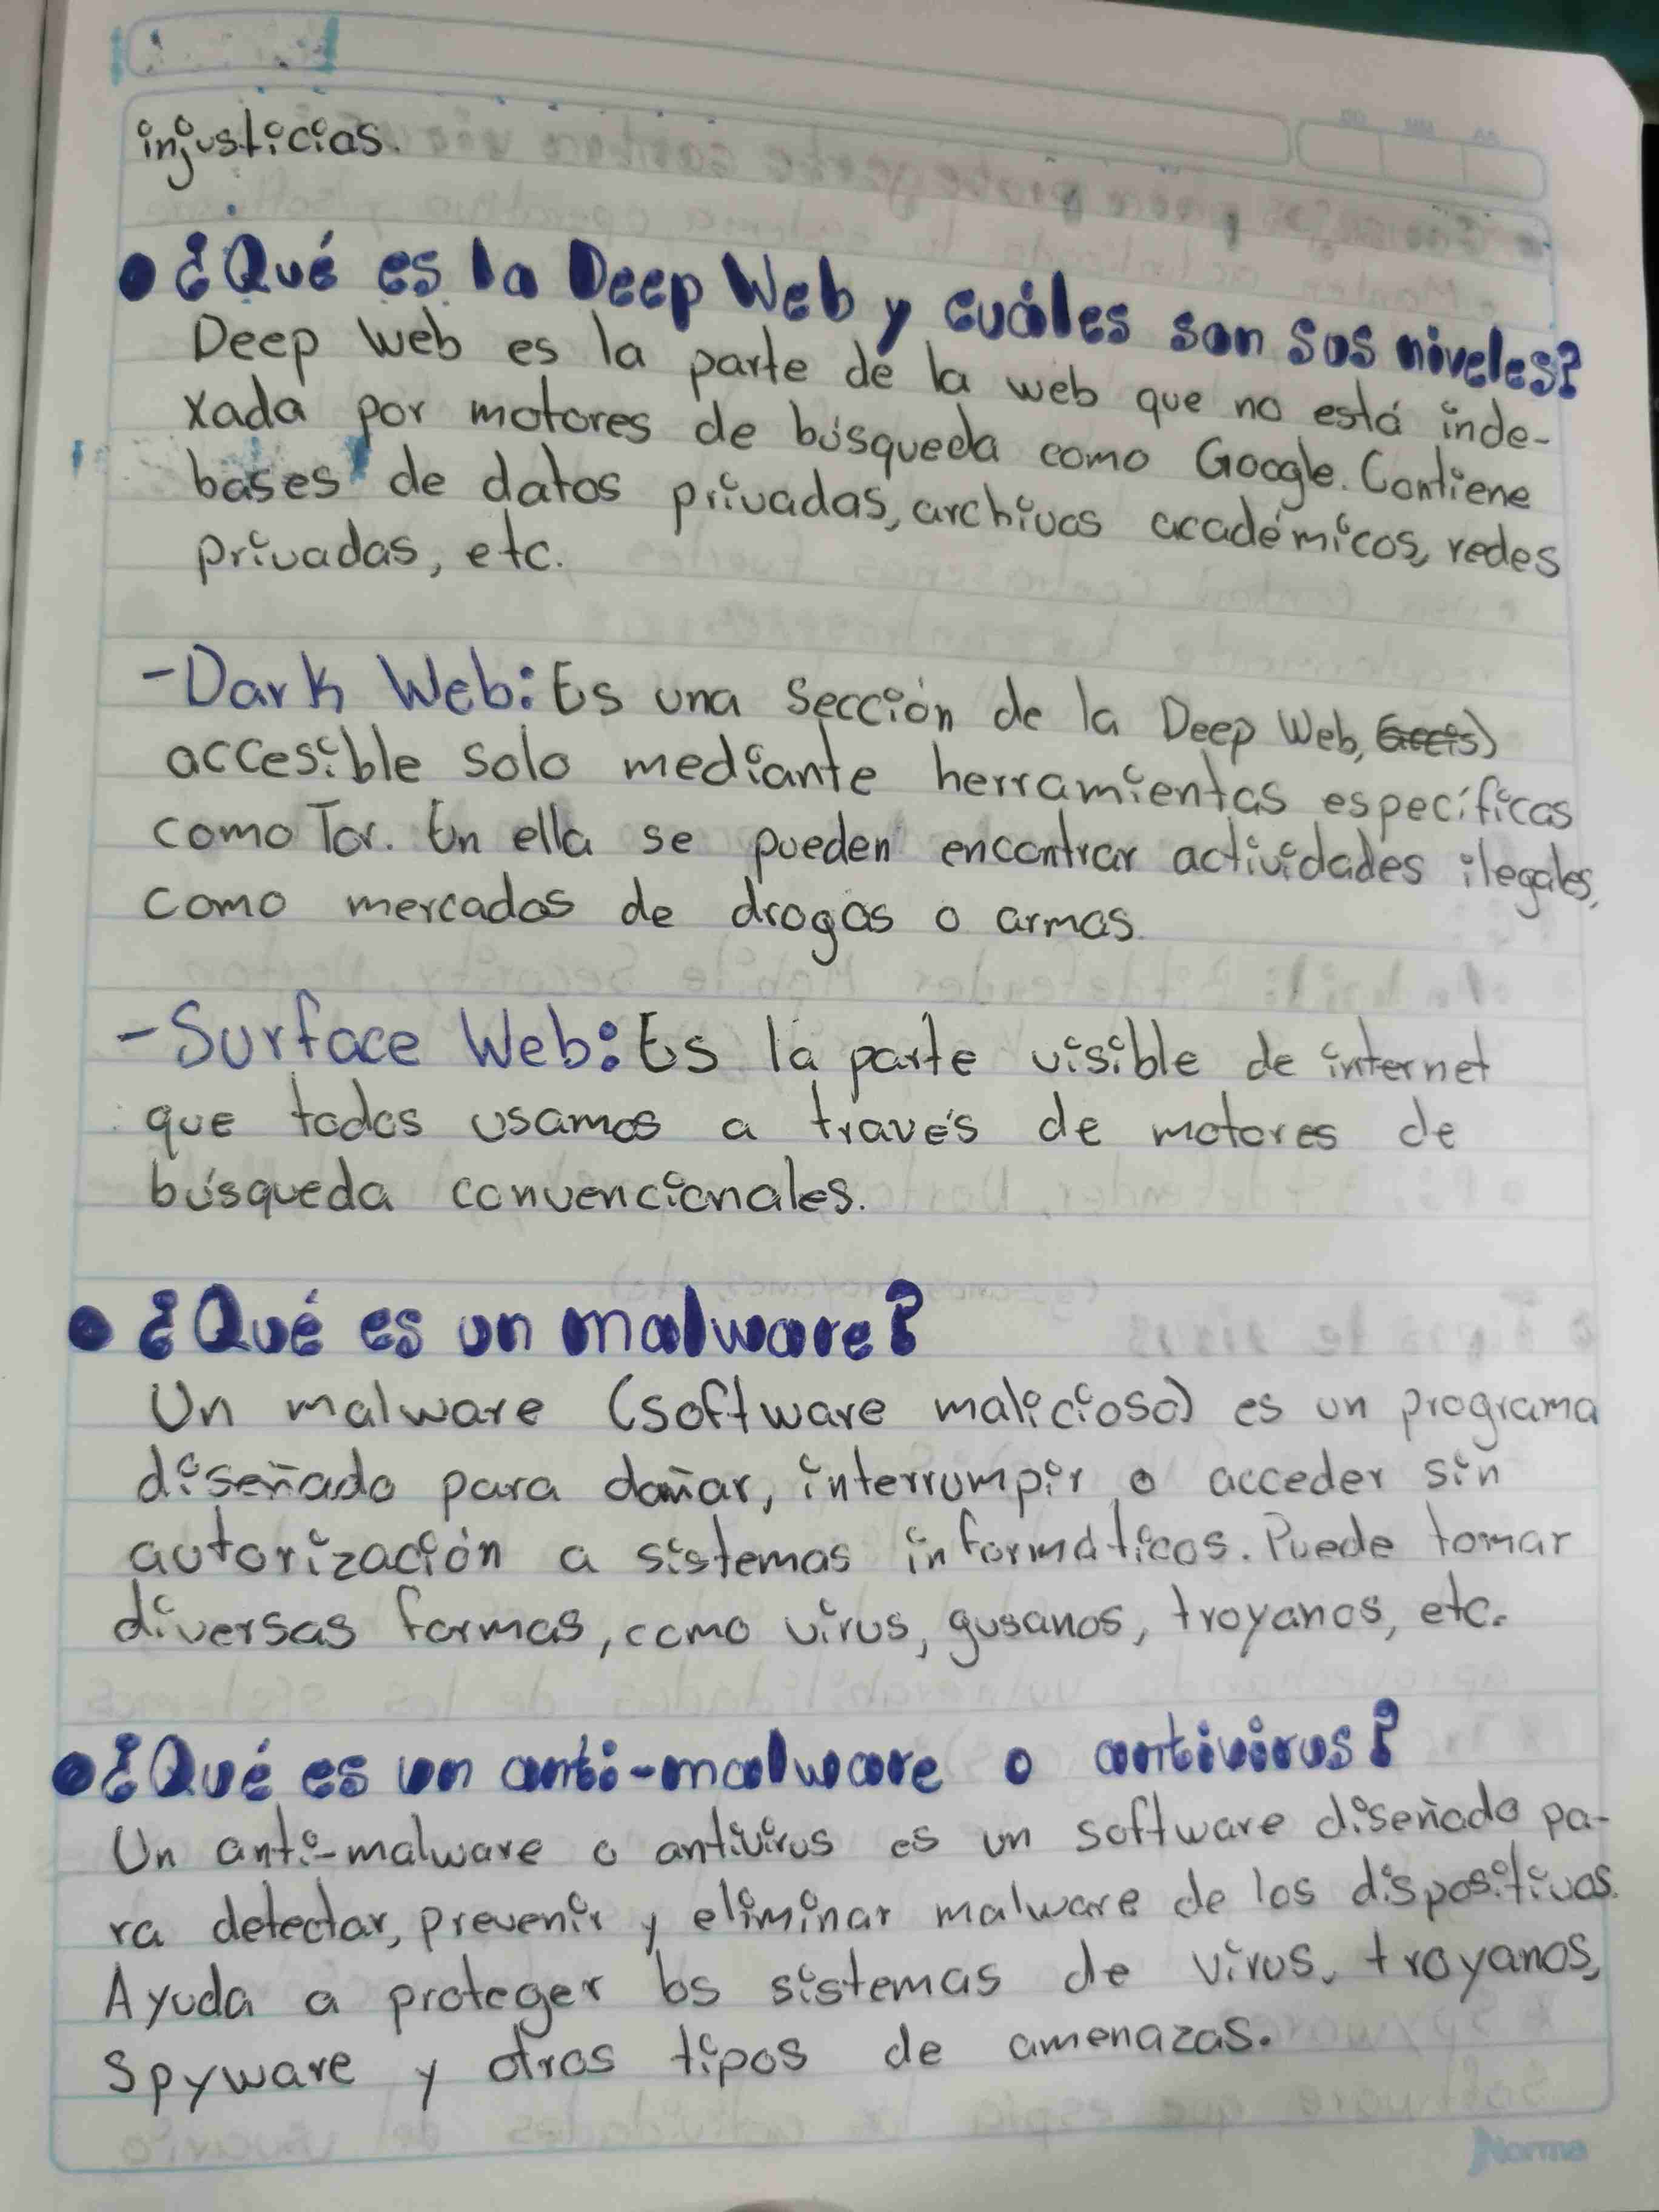 injusticias.
• ¿Qué es la Deep Web y cuáles son sus niveles?
Deep web es la parte de la web que no está inde-
xada por motores de búsqueda como Google. Contiene
bases de datos privadas, archivos académicos, redes
privadas, etc.
- Dark Web: Es una sección de la Deep Web,
accesible solo mediante herramientas específicas
como Tor. En ella se pueden encontrar actividades ilegales,
como mercados de drogas o armas.
- Surface Web: Es la parte visible de internet
que todos usamos a través de motores de
búsqueda convencionales.
• ¿Qué es un malware?
Un malware (software malicioso) es un programa
diseñado para dañar, interrumpir o acceder sin
autorización a sistemas informáticos. Puede tomar
diversas formas, como virus, gusanos, troyanos, etc.
• ¿Qué es un anti-malware o antivirus?
Un anti-malware o antivirus es un software diseñado pa-
ra detectar, prevenir y eliminar malware de los dispositivos.
Ayuda a proteger los sistemas de virus, troyanos,
Spyware y otros tipos de amenazas.
Norma